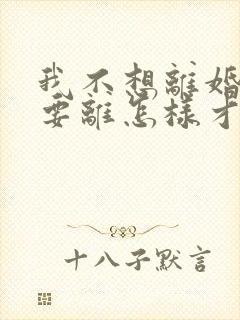 我不想離婚
要離怎樣才
十八子默言